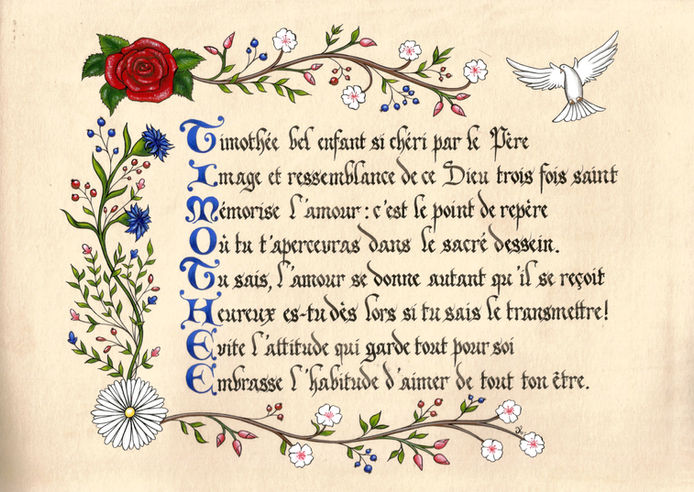 Timothée bel enfant si chéri par le Père
Image et ressemblance de ce Dieu trois fois saint
Mémorise l'amour : c'est le point de repère
Où tu t'apercevras dans le sacré dessein.
Tu sais, l'amour se donne autant qu'il se reçoit
Heureux es-tu dès lors si tu sais le transmettre!
Evite l'attitude qui garde tout pour soi
Embrasse l'habitude d'aimer de tout ton être.